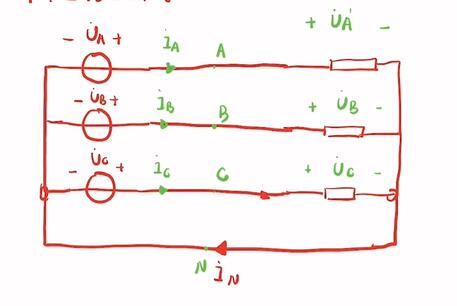 + U̇A' -
- U̇A + İA A
- U̇B + İB B + U̇B -
- U̇C + İC C + U̇C -
N İN